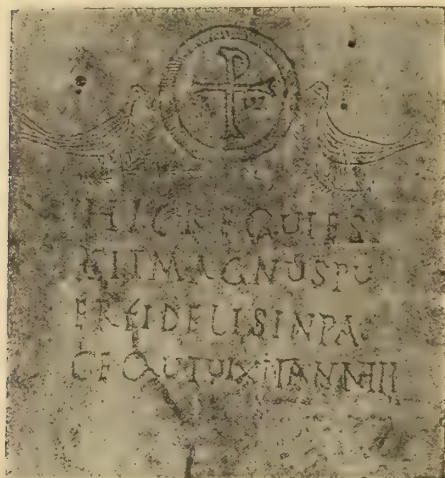 HICREQUIES
CITMAGNUSPU
ERFIDELISINPA
CEQUIUIXITANNIIII